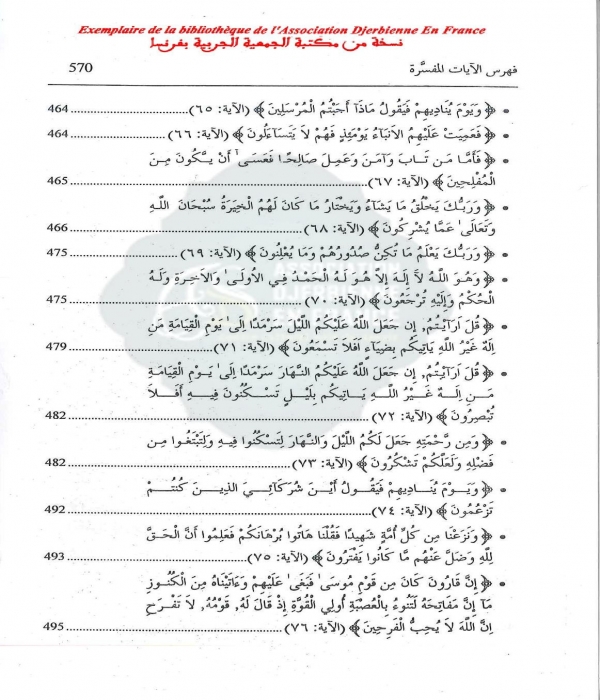 Exemplaire de la bibliothèque de l'Association Djerbienne En France
نسخة من مكتبة الجمعية الجربية بفرنسا
فهرس الآيات المفسَّرة 570
• ﴿ وَيَوْمَ يُنَادِيهِمْ فَيَقُولُ مَاذَآ أَجَبْتُمُ الْمُرْسَلِينَ ﴾ (الآية: ٦٥) 464
• ﴿ فَعَمِيَتْ عَلَيْهِمُ الَانبَآءُ يَوْمَئِذٍ فَهُمْ لَا يَتَسَآءَلُونَ ﴾ (الآية: ٦٦) 464
• ﴿ فَأَمَّا مَن تَابَ وَءَامَنَ وَعَمِلَ صَالِحًا فَعَسَىٰٓ أَنْ يَّكُونَ مِنَ
الْمُفْلِحِينَ ﴾ (الآية: ٦٧) 465
• ﴿ وَرَبُّكَ يَخْلُقُ مَا يَشَآءُ وَيَخْتَارُ مَا كَانَ لَهُمُ الْخِيَرَةُ سُبْحَانَ اللَّهِ
وَتَعَالَىٰ عَمَّا يُشْرِكُونَ ﴾ (الآية: ٦٨) 466
• ﴿ وَرَبُّكَ يَعْلَمُ مَا تُكِنُّ صُدُورُهُمْ وَمَا يُعْلِنُونَ ﴾ (الآية: ٦٩) 475
• ﴿ وَهُوَ اللَّهُ لَآ إِلَهَ إِلاَّ هُوَ لَهُ الْحَمْدُ فِي الُاولَىٰ وَالَاخِرَةِ وَلَهُ
الْحُكْمُ وَإِلَيْهِ تُرْجَعُونَ ﴾ (الآية: ٧٠) 475
• ﴿ قُلَ اَرَآيْتُمُۥٓ إِن جَعَلَ اللَّهُ عَلَيْكُمُ اللَّيْلَ سَرْمَدًا اِلَىٰ يَوْمِ الْقِيَامَةِ مَنِ
اِلَهٌ غَيْرُ اللَّهِ يَاتِيكُم بِضِيَآءٍ اَفَلَا تَسْمَعُونَ ﴾ (الآية: ٧١) 479
• ﴿ قُلَ اَرَآيْتُمُۥٓ إِن جَعَلَ اللَّهُ عَلَيْكُمُ النَّهَارَ سَرْمَدًا اِلَىٰ يَوْمِ الْقِيَامَةِ
مَنِ اِلَهٌ غَيْرُ اللَّهِ يَاتِيكُم بِلَيْلٍ تَسْكُنُونَ فِيهِ أَفَلَا
تُبْصِرُونَ ﴾ (الآية: ٧٢) 482
• ﴿ وَمِن رَّحْمَتِهِ جَعَلَ لَكُمُ اللَّيْلَ وَالنَّهَارَ لِتَسْكُنُوا فِيهِ وَلِتَبْتَغُوا مِن
فَضْلِهِ وَلَعَلَّكُمْ تَشْكُرُونَ ﴾ (الآية: ٧٣) 482
• ﴿ وَيَوْمَ يُنَادِيهِمْ فَيَقُولُ أَيْنَ شُرَكَآئِيَ الذِينَ كُنتُمْ
تَزْعُمُونَ ﴾ (الآية: ٧٤) 492
• ﴿ وَنَزَعْنَا مِن كُلِّ أُمَّةٍ شَهِيدًا فَقُلْنَا هَاتُوا بُرْهَانَكُمْ فَعَلِمُوا أَنَّ الْحَقَّ
لِلَّهِ وَضَلَّ عَنْهُم مَّا كَانُوا يَفْتَرُونَ ﴾ (الآية: ٧٥) 493
• ﴿ إِنَّ قَارُونَ كَانَ مِن قَوْمِ مُوسَىٰ فَبَغَىٰ عَلَيْهِمْ وَءَاتَيْنَاهُ مِنَ الْكُنُوزِ
مَآ إِنَّ مَفَاتِحَهُ لَتَنُوءُ بِالْعُصْبَةِ أُولِي الْقُوَّةِ إِذْ قَالَ لَهُۥ قَوْمُهُۥ لَا تَفْرَحِ
اِنَّ اللَّهَ لَا يُحِبُّ الْفَرِحِينَ ﴾ (الآية: ٧٦) 495
ASSOCIATION
DJERBIENNE
EN FRANCE